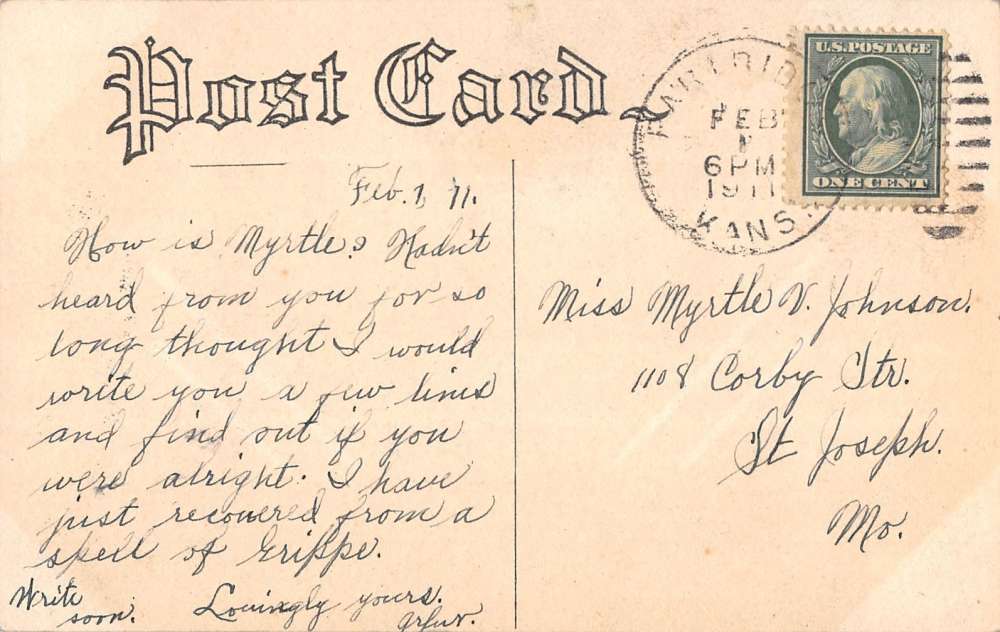 Post Card
U.S. POSTAGE
ONE CENT
FEB
1
6 PM
1911
KANS.
Feb. 1, 11.
How is Myrtle? Hadn't
heard from you for so
long thought I would
write you a few lines
and find out if you
were alright. I have
just recovered from a
spell of Grippe.
Write
soon.
Lovingly yours.
Miss Myrtle V. Johnson.
1108 Corby Str.
St Joseph.
Mo.